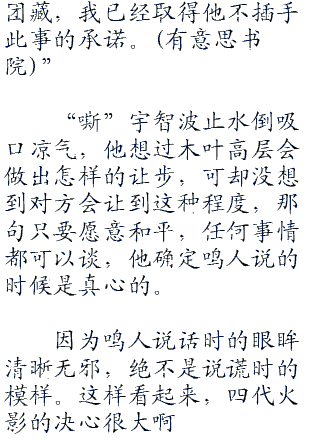 团藏，我已经取得他不插手
此事的承诺。(有意思书
院)”
“嘶”宇智波止水倒吸
口凉气，他想过木叶高层会
做出怎样的让步，可却没想
到对方会让到这种程度，那
句只要愿意和平，任何事情
都可以谈，他确定鸣人说的
时候是真心的。
因为鸣人说话时的眼眸
清晰无邪，绝不是说谎时的
模样。这样看起来，四代火
影的决心很大啊